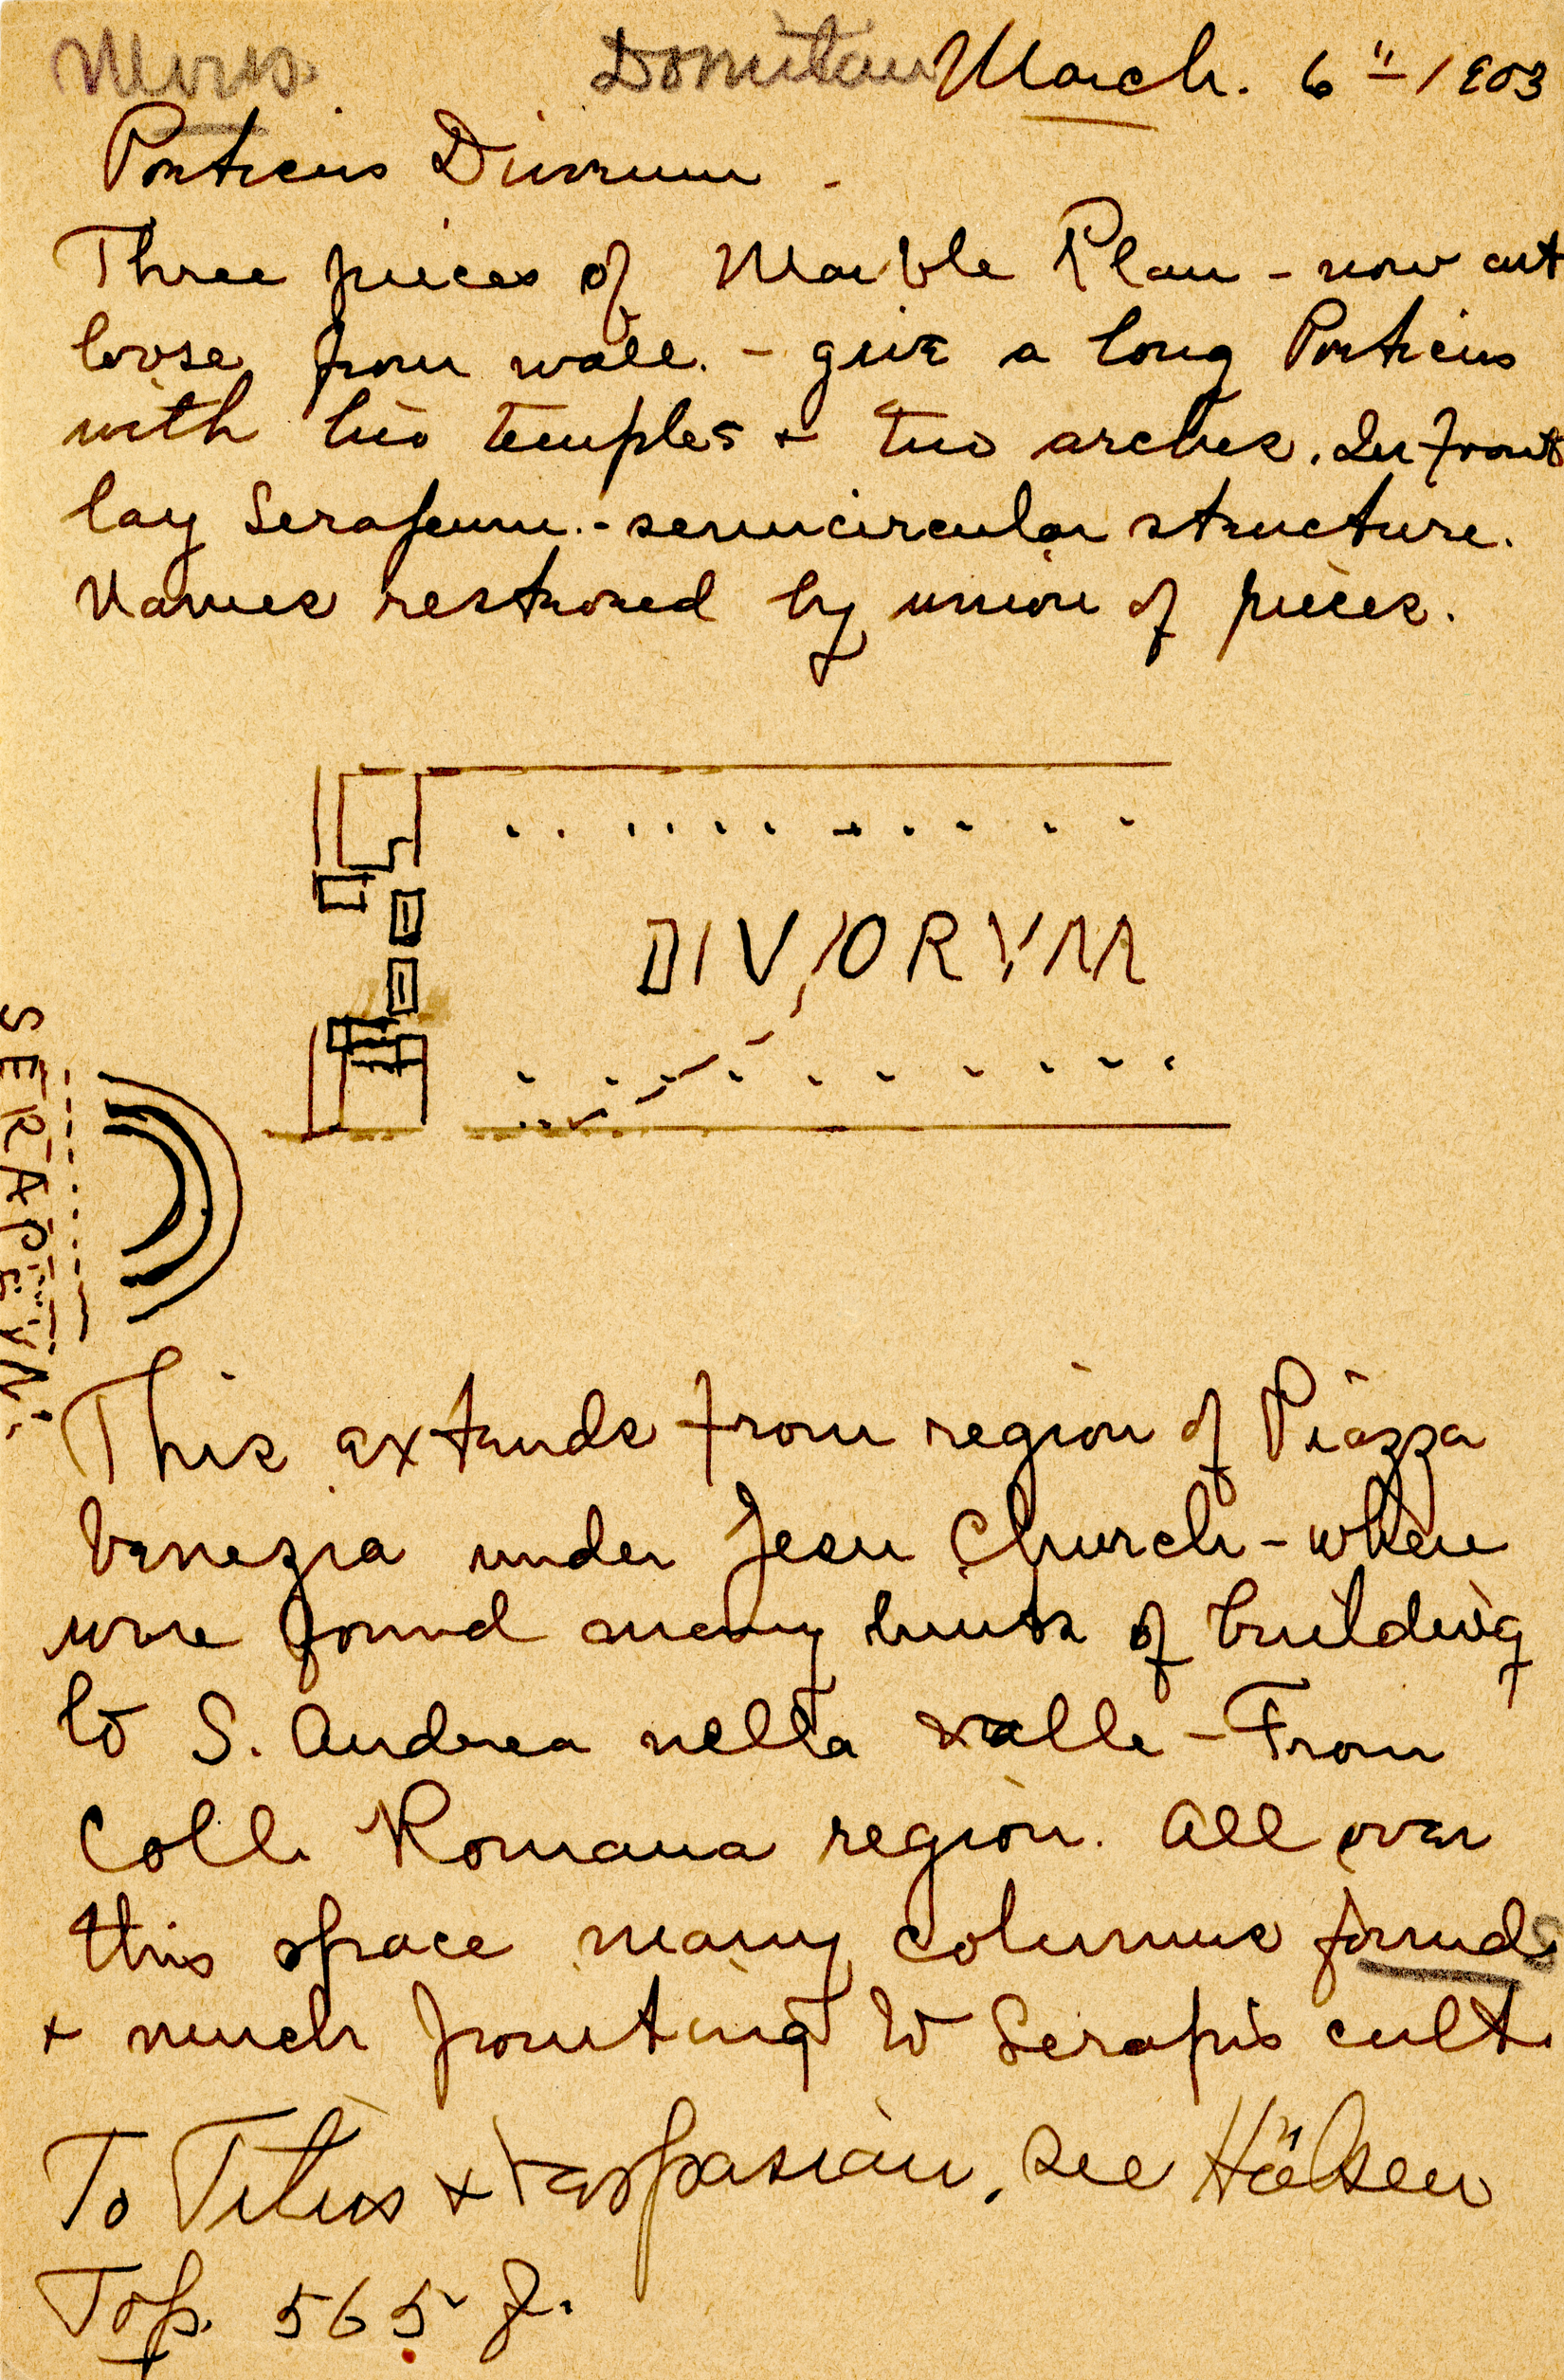 Domitian March. 6" 1903
Porticus Divorum.
Three pieces of Marble Plan - now cut
loose from wall. - give a long Porticus
with two temples + two arches. In front
lay Serapeum. - semicircular structure.
Names restored by union of pieces.
DIVORVM
SERAPEVM
This extends from region of Piazza
Venezia under Jesu Church - where
were found many hints of building
to S. Andrea nella valle - From
Coll. Romana region. All over
this space many columns founds
+ much pointing to Serapis cult.
To Titus + Vaspasian. See Hülsen
Top. 565 f.